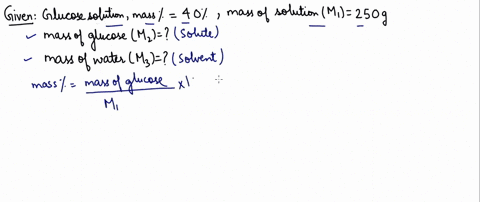 Given: Glucose solution, mass % = 40%, mass of solution (M1) = 250g
✓ mass of glucose (M2) = ? (Solute)
✓ mass of water (M3) = ? (Solvent)
mass % = mass of glucose × 1
M1